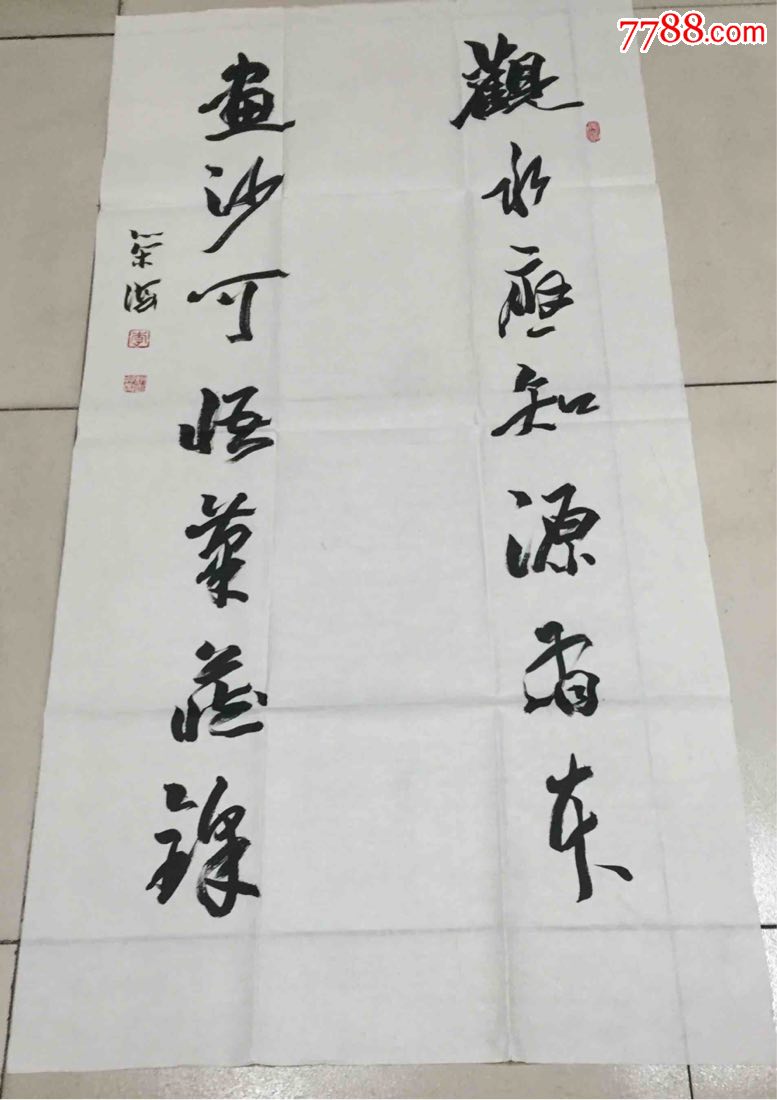 7788.com
觀水應知源有本
畫沙可悟筆藏鋒
榮海
李